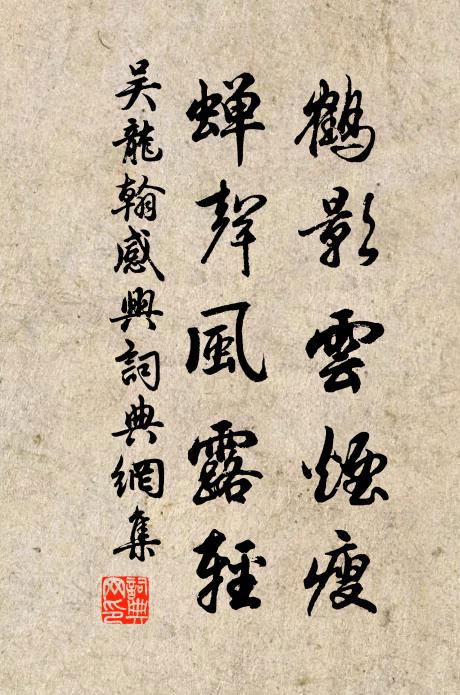 鶴影雲煙瘦
蟬聲風露輕
吳龍翰感興詞典網集
詞典網印